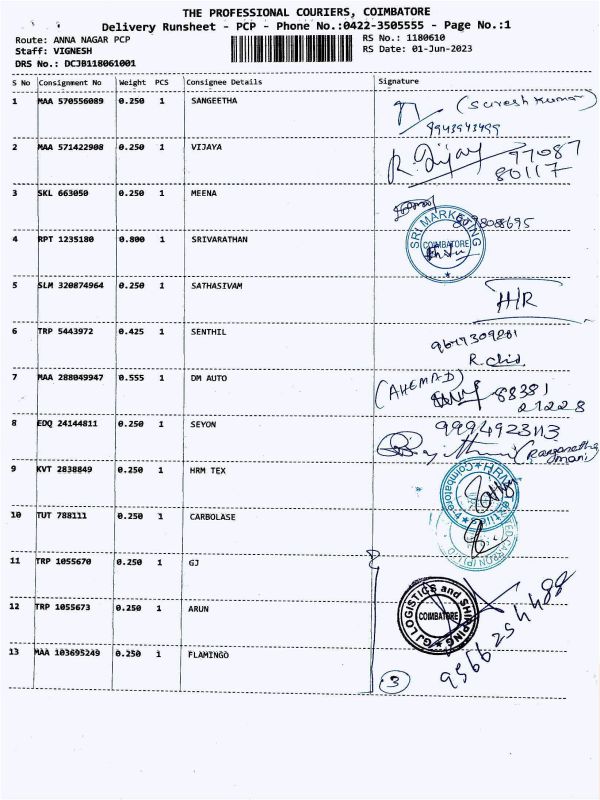 THE PROFESSIONAL COURIERS, COIMBATORE
Delivery Runsheet - PCP - Phone No.:0422-3505555 - Page No.:1
Route: ANNA NAGAR PCP RS No.: 1180610
Staff: VIGNESH RS Date: 01-Jun-2023
DRS No.: DCJB118061001
S No Consignment No Weight PCS Consignee Details Signature
1 MAA 570556089 0.250 1 SANGEETHA (Sureshkumar)
9943943499
2 MAA 571422908 0.250 1 VIJAYA R. Vijay 97087
80117
3 SKL 663050 0.250 1 MEENA
SRI MARKETING
COIMBATORE
4 RPT 1235180 0.800 1 SRIVARATHAN
5 SLM 320874964 0.250 1 SATHASIVAM H/R
6 TRP 5443972 0.425 1 SENTHIL
7 MAA 288049947 0.555 1 DM AUTO (AHEMAD) 88381
21228
8 EDQ 24144811 0.250 1 SEYON 9994923113
9 KVT 2838849 0.250 1 HRM TEX
Coimbatore
10 TUT 788111 0.250 1 CARBOLASE
11 TRP 1055670 0.250 1 GJ
GJ LOGISTICS and SHIPPING
COIMBATORE
12 TRP 1055673 0.250 1 ARUN
9566 254488
13 MAA 103695249 0.250 1 FLAMINGO
3